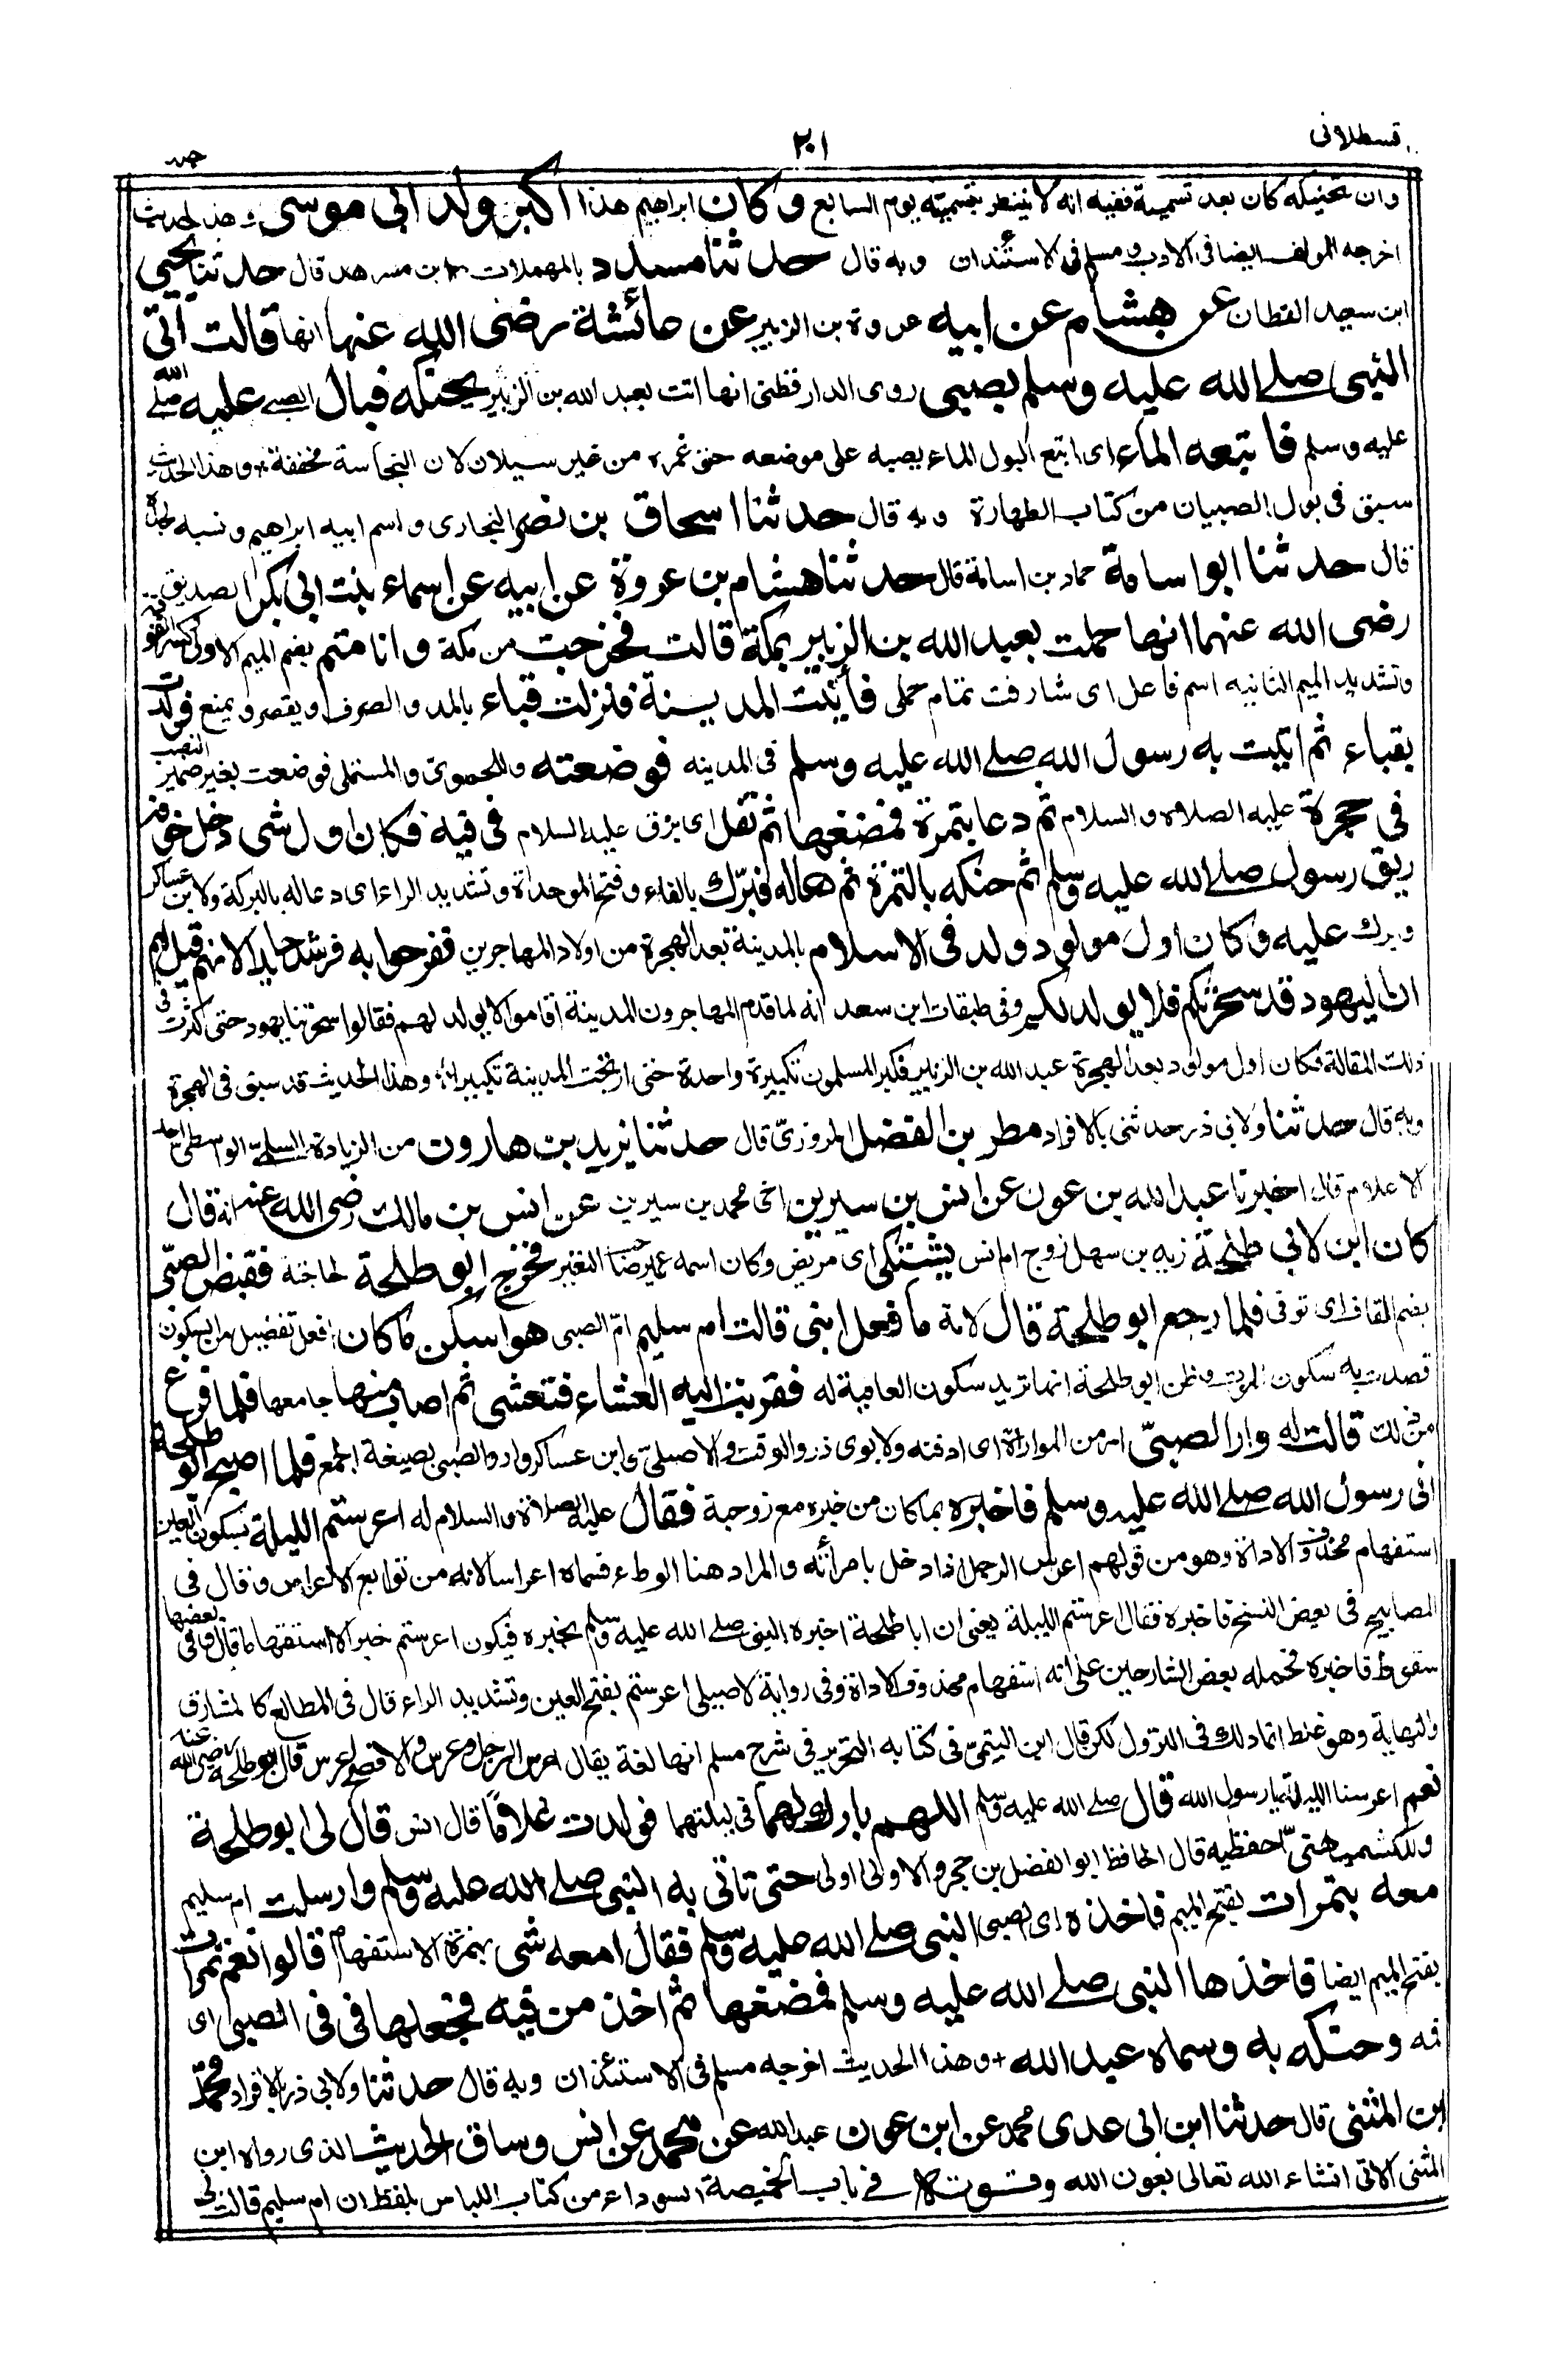 قسطلانى
٢٠١
وان تحنيكه كان بعد تسميته ففيه انه لا ينتظر بتسميته يوم السابع وكان ابراهيم هذا اكبر ولد ابى موسى وهذا الحديث
اخرجه المؤلف ايضا فى الادب ومسلم فى الاستئذان وبه قال حدثنا مسدد بالمهملات ابن مسرهد قال حدثنا يحيى
ابن سعيد القطان عن هشام عن ابيه عروة بن الزبير عن عائشة رضى الله عنها انها قالت اتى
النبى صلے الله عليه وسلم بصبى روى الدارقطنى انها اتت بعبد الله بن الزبير يحنكه فبال الصبى عليه صلے الله
عليه وسلم فاتبعه الماء اى اتبع البول الماء بصبه على موضعه حتى غمره من غير سيلان لان النجاسة مخففة وهذا الحديث
سبق فى بول الصبيان من كتاب الطهارة وبه قال حدثنا اسحاق بن نصر البخارى واسم ابيه ابراهيم ونسبه لجده
قال حدثنا ابو اسامة حماد بن اسامة قال حدثنا هشام بن عروة عن ابيه عن اسماء بنت ابى بكر الصديق
رضى الله عنهما انها حملت بعبد الله بن الزبير بمكة قالت فخرجت من مكة وانا متم بضم الميم الاولى وكسر الفوقية
وتشديد الميم الثانيه اسم فاعل اى شارفت تمام حملى فأتيت المدينة فنزلت قباء بالمد والصرف ويقصر ويمنع فولدت
بقباء ثم اتيت به رسول الله صلے الله عليه وسلم فى المدينه فوضعته وللحموى والمستملى فوضعت بغير ضمير النصب
فى حجرة عليه الصلاه والسلام ثم دعا بتمرة فمضغها ثم تفل اى بزق عليه السلام فى فيه فكان اول شى دخل جوفه
ريق رسول صلے الله عليه وسلم ثم حنكه بالتمرة ثم دعا له فبرّك بالفاء وفتح الموحداة وتشديد الراء اى دعا له بالبركة ولابن عساكر
وبرك عليه وكان اول مولود ولد فى الاسلام بالمدينة بعد الهجرة من اولاد المهاجرين ففرحوا به فرحا شديدا لانهم قيل لهم
ان اليهود قد سحرتكم فلا يولد لكم وفى طبقات ابن سعد انه لما قدم المهاجرون المدينة اقاموا لا يولد لهم فقالوا سحرتنا يهود حتى كثرت فى
ذلك المقالة فكان اول مولود بعد الهجرة عبد الله بن الزبير فكبر المسلمون تكبيرة واحدة حتى ارتجت المدينة تكبيرا وهذا الحديث قد سبق فى الهجرة
وبه قال حدثنا ولابى ذر حدثنى بالافراد مطر بن الفضل المروزىّ قال حدثنا يزيد بن هارون من الزيادة السلمىّ الواسطىّ احد
الاعلام قال اخبرنا عبد الله بن عون عن انس بن سيرين اخى محمد بن سيرين عن انس بن مالك رضى الله عنه انه قال
كان ابن لابى طلحة زيد بن سهل زوج ام انس يشتكى اى مريض وكان اسمه عمير صاحب النغير فخرج ابو طلحة لحاجته فقبض الصبى
بضم القاف اى توفى فلما رجع ابو طلحة قال لامه ما فعل ابنى قالت ام سليم امّ الصبى هو اسكن ما كان افعل تفضيل من السكون
قصدت به سكون الموت وظن ابو طلحة انها تريد سكون العافية له فقربت اليه العشاء فتعشى ثم اصاب منها جامعها فلما فرغ
من ذلك قالت له وار الصبىّ امر من المواراة اى ادفنه ولابوى ذر والوقت والاصيلىّ وابن عساكر واروا الصبى بصيغة الجمع فلما اصبح ابو طلحة
اتى رسول الله صلے الله عليه وسلم فاخبره بما كان من خبره مع زوجته فقال عليه الصلاة والسلام له اعرستم الليلة بسكون العين
استفهام محذوف الاداة وهو من قولهم اعرس الرجل اذا دخل بامرأته والمراد هنا الوطء فسماه اعراسا لانه من توابع الاعراس وقال فى
المصابيح فى بعض النسخ فاخبره فقال اعرستم الليلة يعنى ان ابا طلحة اخبره النبى صلے الله عليه وسلم بخبره فيكون اعرستم خبرا لا استفهاما قال وفى بعضها
سقوط فاخبره فحمله بعض الشارحين على انه استفهام محذوف الاداة وفى رواية الاصيلى اعرستم بفتح العين وتشديد الراء قال فى المطالع كالمشارق
والنهاية وهو غلط انما ذلك فى النزول لكن قال ابن التيمىّ فى كتابه التحرير فى شرح مسلم انها لغة يقال اعرس الرجل وعرس والافصح اعرس قال ابو طلحة رضى الله عنه
نعم اعرسنا الليلة يا رسول الله قال صلے الله عليه وسلم اللهم بارك لهما فى ليلتهما فولدت غلاما قال انس قال لى ابو طلحة
وللكشميهنىّ احفظيه قال الحافظ ابو الفضل بن حجر والاولى اولى حتى تاتى به النبى صلے الله عليه وسلم وارسلت ام سليم
معه بتمرات بفتح الميم فاخذه اى الصبى النبى صلے الله عليه وسلم فقال امعه شى بهمزة الاستفهام قالوا نعم تمرات
بفتح الميم ايضا فاخذها النبى صلے الله عليه وسلم فمضغها ثم اخذ من فيه فجعلها فى فى الصبى اى
فمه وحنكه به وسماه عبد الله وهذا الحديث اخرجه مسلم فى الاستئذان وبه قال حدثنا ولابى ذر بالافراد محمد
ابن المثنى قال حدثنا ابن ابى عدى محمد عن ابن عون عبد الله عن محمد عن انس وساق الحديث الذى رواه ابن
المثنى الاتى انشاء الله تعالى بعون الله وقوته فى باب الخميصة السوداء من كتاب اللباس بلفظ ان ام سليم قالت لى